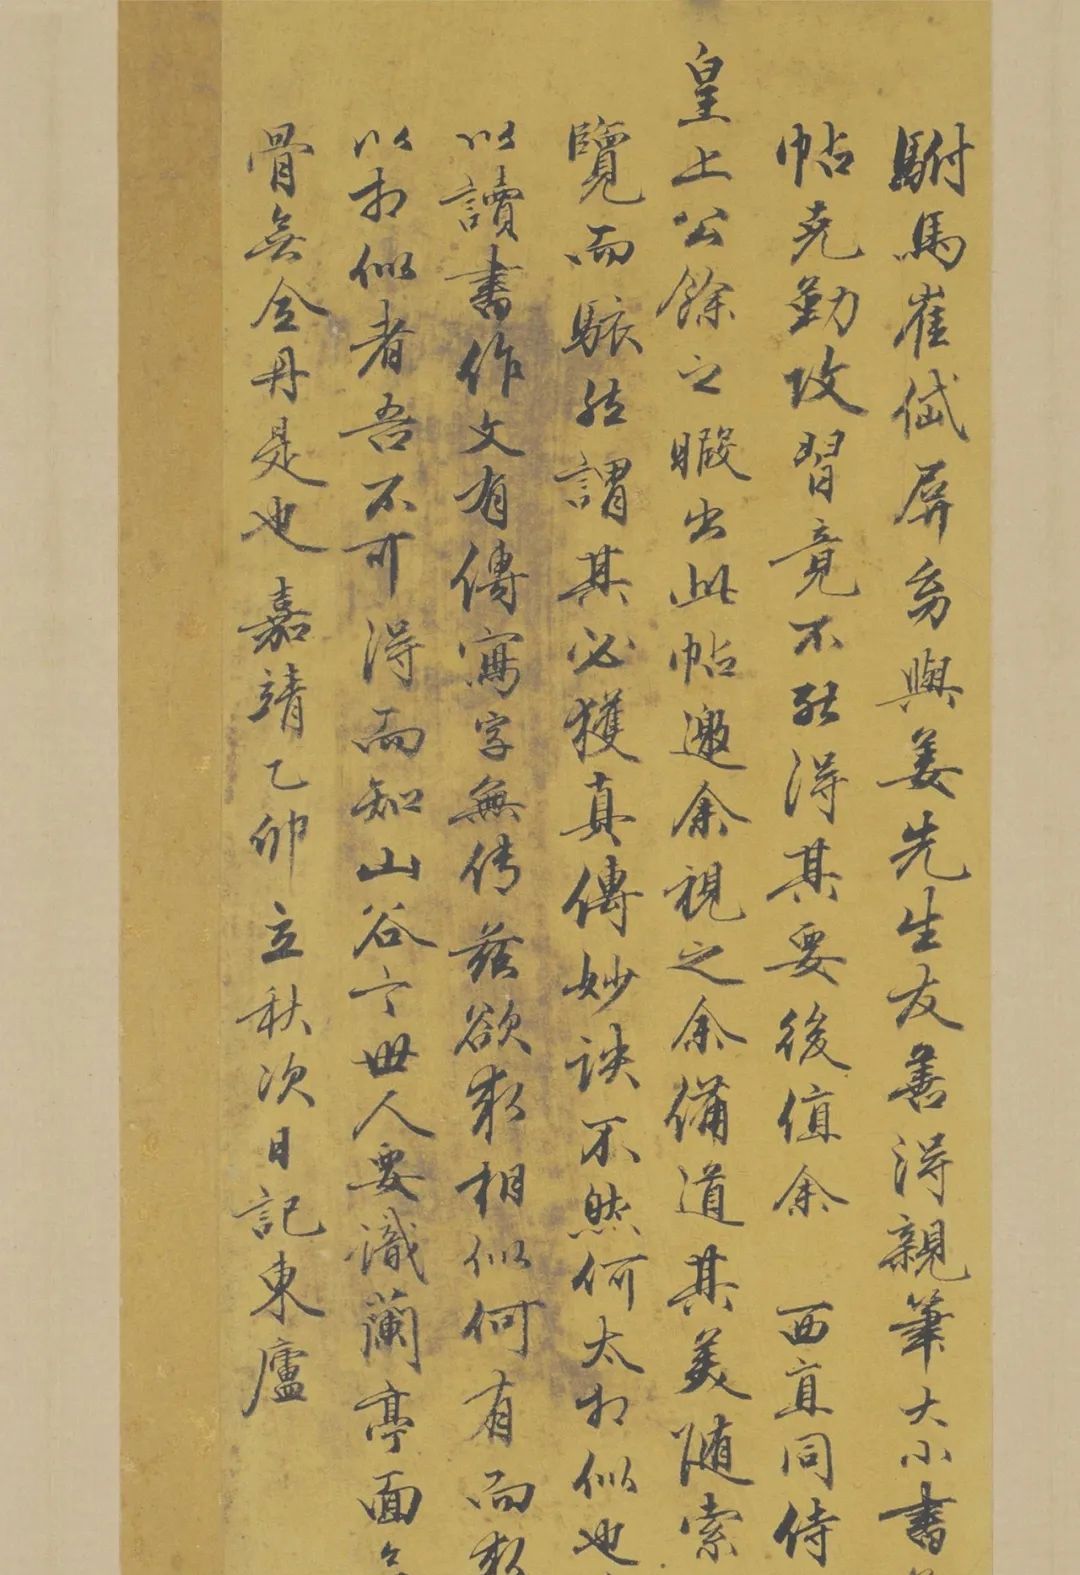 駙馬崔岱屏翁與姜先生友善得親筆大小書
帖克勤攻習竟不能得其要後值余 西直同侍
皇上公餘之暇出此帖邀余視之余備道其美随索
覽而駭然謂其必獲真傳妙訣不然何太相似也
以讀書作文有傳寫字無传兹欲求相似何有而求
以相似者吾不可得而知山谷亦云世人要識蘭亭面
骨無金丹是也 嘉靖乙卯立秋次日記東廬